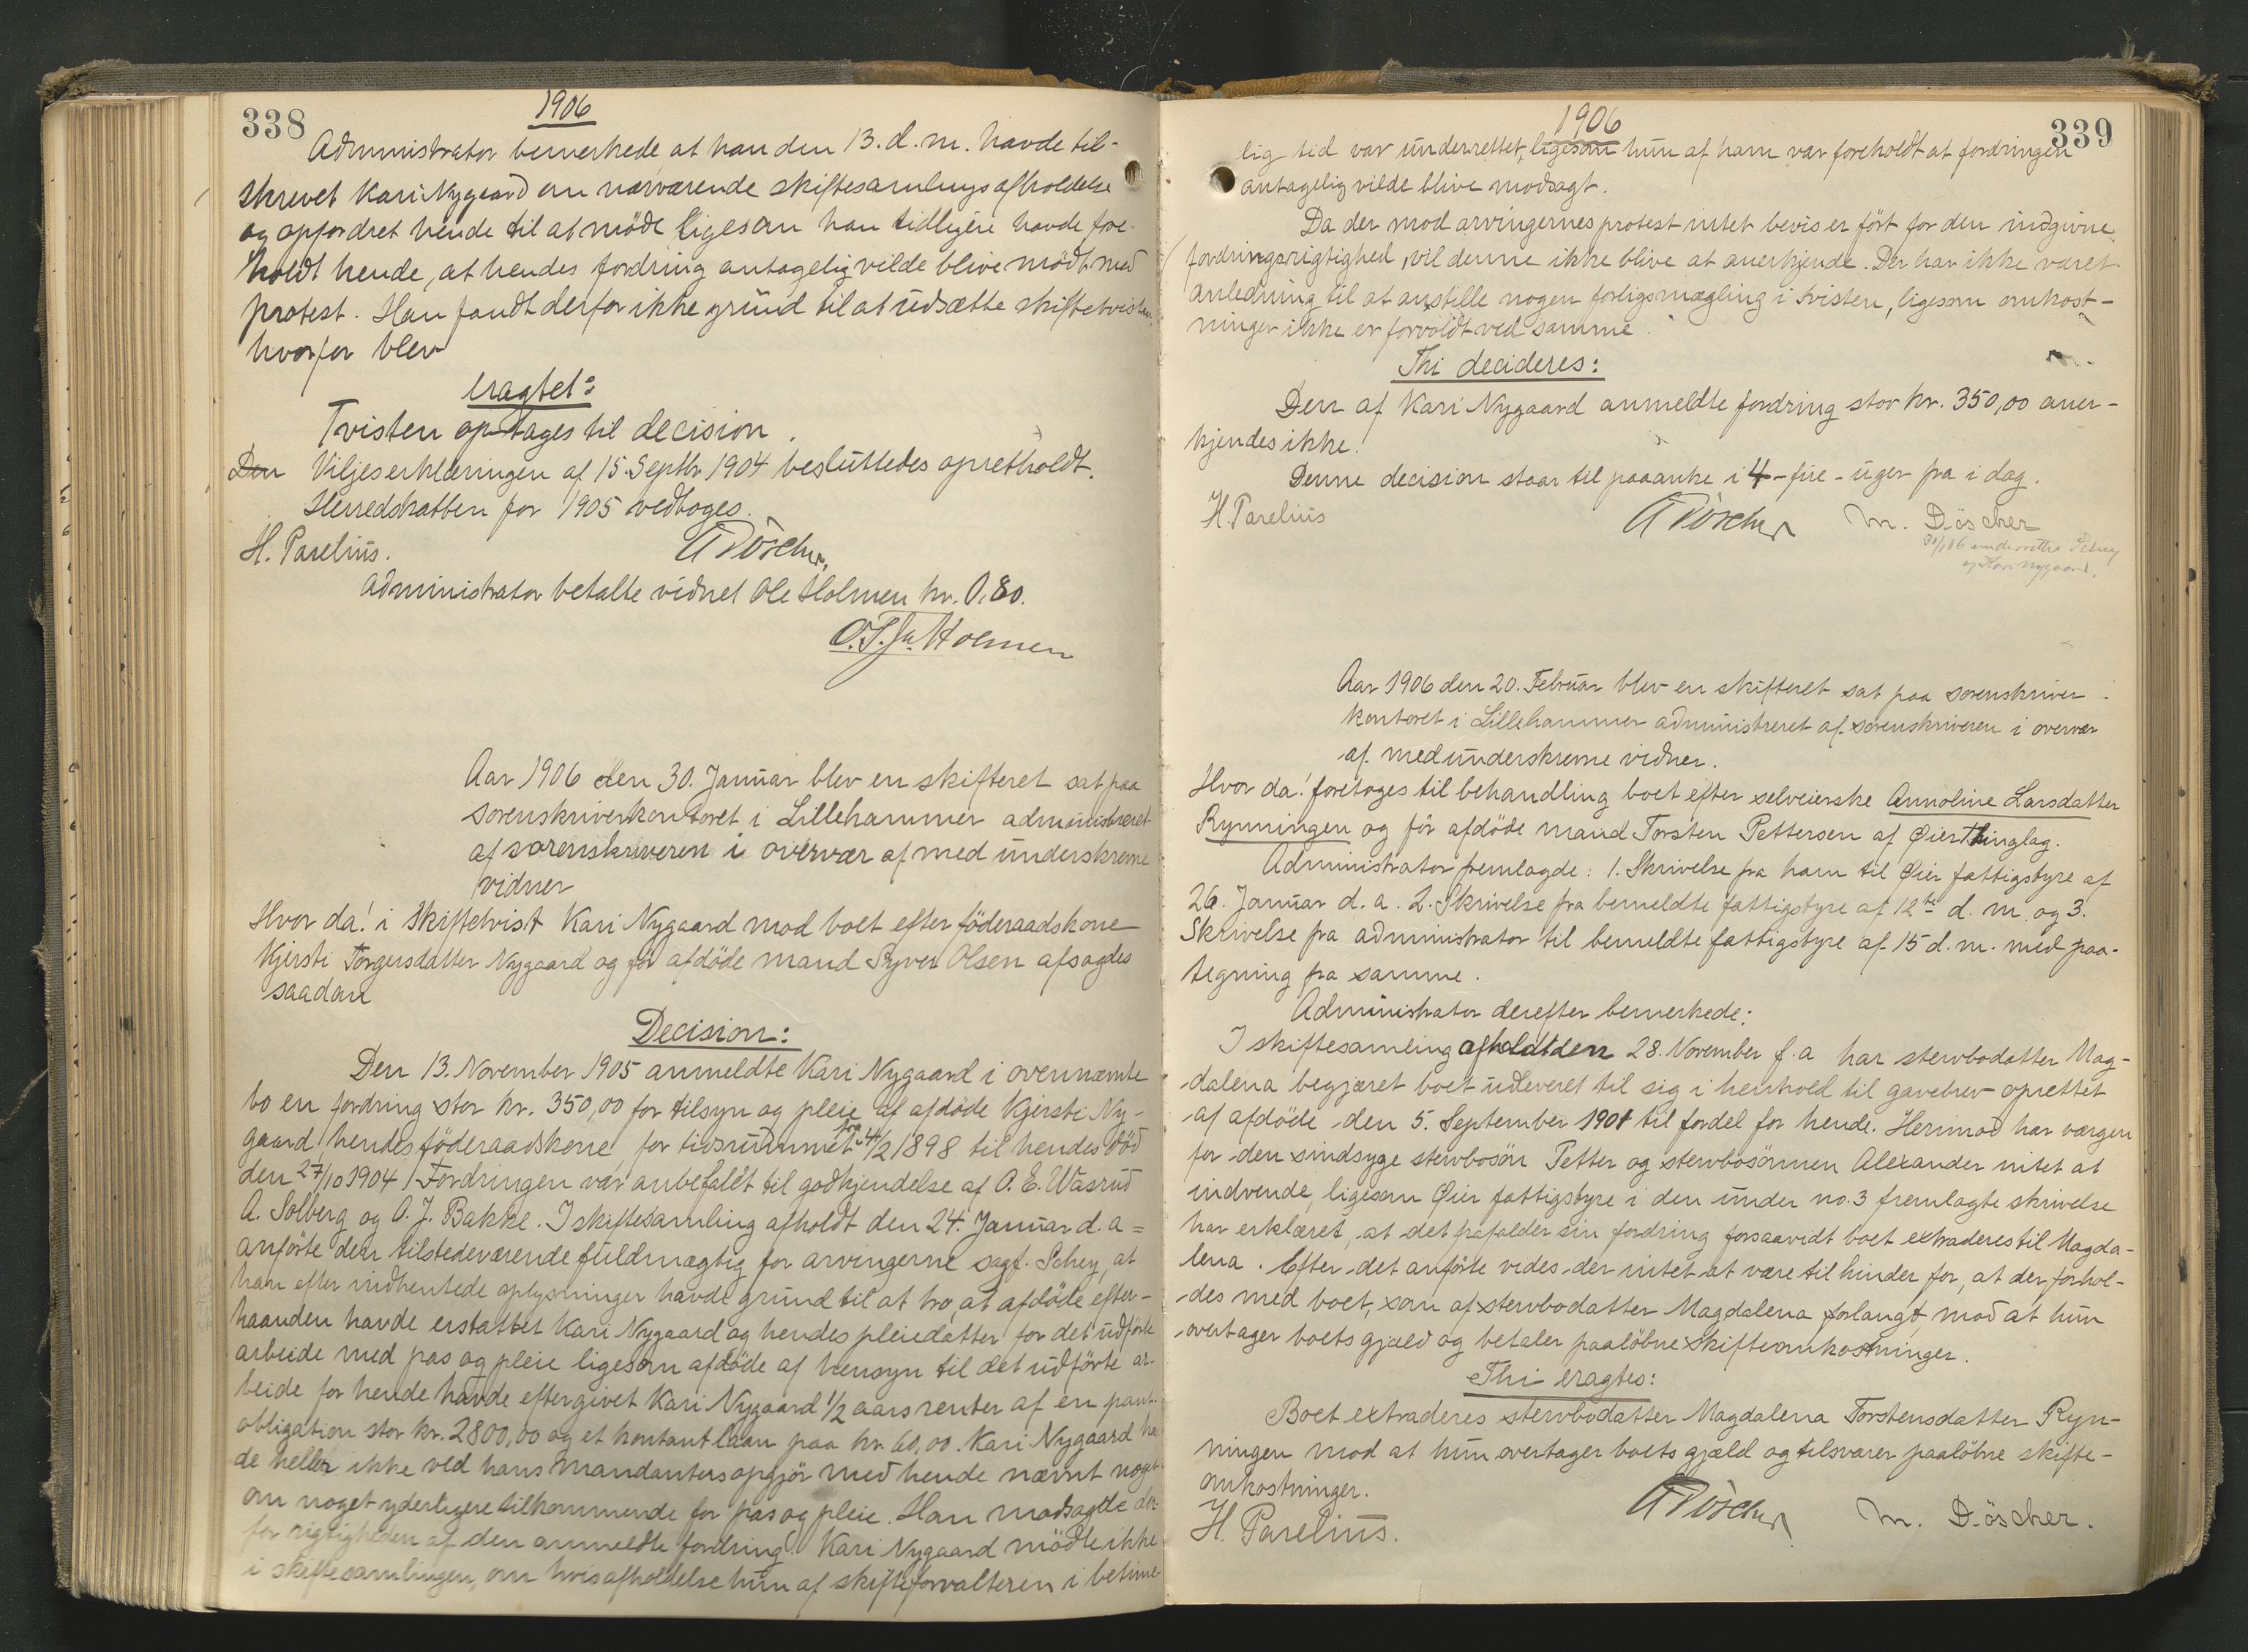 338
1906
Administrator bemerkede at han den 13. d. m. havde til-
skrevet Kari Nygaard om nærværende skiftesamlings afholdelse
og opfordret hende til at møde ligesom han tidligere havde fore-
holdt hende, at hendes fordring antagelig vilde blive mødt med
protest. Han fandt derfor ikke grund til at udsætte skiftetvisten,
hvorfor blev
eragtet:
Tvisten optages til decision.
Den Viljeserklæringen af 15. Septbr 1904 besluttedes opretholdt.
Herredskatten for 1905 vedtoges.
H. Parelius.
Administrator betalte vidnet Ole Holmen kr. 0,80.
Holmen
Aar 1906 den 30. Januar blev en skifteret sat paa
sorenskriverkontoret i Lillehammer administreret
af sorenskriveren i overvær af medunderskrevne
vidner
Hvor da! i Skiftetvist Kari Nygaard mod boet efter föderaadskone
Kjersti Torgersdatter Nygaard og før afdöde mand Syver Olsen afsagdes
saadan
Decision:
Den 13. November 1905 anmeldte Kari Nygaard i ovennævnte
bo en fordring stor kr. 350,00 for tilsyn og pleie af afdöde Kjersti Ny-
gaard, hendes föderaadskone, for tidsrummet fra 4/2 1898 til hendes död
den 27/10 1904. Fordringen var anbefalet til godkjendelse af O. E. Wasrud
A. Solberg og O. J. Bakke. I skiftesamling afholdt den 24. Januar d. a =
anførte den tilstedeværende fuldmægtig for arvingerne sagf. Schey, at
han efter indhentede oplysninger havde grund til at tro, at afdöde efter-
haanden havde erstattet Kari Nygaard og hendes pleiedatter for det udförte
arbeide med pas og pleie ligesom afdöde af hensyn til det udförte ar-
beide for hende havde eftergivet Kari Nygaard 1/2 aars renter af en pant-
obligation stor kr. 2800,00 og et kontant laan paa kr. 60,00. Kari Nygaard hav-
de heller ikke ved hans mandanters opgjör med hende nævnt noget
om noget yderligere tilkommende for pas og pleie. Han modsagde der-
for rigtigheden af den anmeldte fordring. Kari Nygaard mödte ikke
i skiftesamlingen, om hvis afholdelse hun af skifteforvalteren i betime-
339
1906
lig tid var underrettet, ligesom hun af ham var foreholdt at fordringen
antagelig vilde blive modsagt.
Da der mod arvingernes protest intet bevis er fört for den indgivne
fordrings rigtighed, vil denne ikke blive at anerkjende. Der har ikke været
anledning til at anstille nogen forligsmægling i tvisten, ligesom omkost-
ninger ikke er forvoldt ved samme.
Thi decideres:
Den af Kari Nygaard anmeldte fordring stor kr. 350,00 aner-
kjendes ikke.
Denne decision staar til paaanke i 4 - fire - uger fra i dag.
H. Parelius
A Döscher M. Döscher
30/1 06 underrettes Schey
og Kari Nygaard.
Aar 1906 den 20. Februar blev en skifteret sat paa sorenskriver-
kontoret i Lillehammer administreret af sorenskriveren i overvær
af medunderskrevne vidner.
Hvor da! foretoges til behandling boet efter selveierske Annoline Larsdatter
Rynningen og för afdöde mand Torsten Pettersen af Øier Thinglag.
Administrator fremlagde: 1. Skrivelse fra ham til Øier fattigstyre af
26. Januar d. a. 2. Skrivelse fra bemeldte fattigstyre af 12te d. m. og 3.
Skrivelse fra administrator til bemeldte fattigstyre af 15 d. m. med paa-
tegning fra samme.
Administrator derefter bemerkede:
I skiftesamling afholdt den 28. November f. a har stervbodatter Mag-
dalena begjæret boet udleveret til sig i henhold til gavebrev oprettet
af afdöde den 5. September 1901 til fordel for hende. Herimod har værgen
for den sindsyge stervbosön Petter og stervbosönnen Alexander intet at
indvende, ligesom Øier fattigstyre i den under no. 3 fremlagte skrivelse
har erklæret, at det frafalder sin fordring forsaavidt boet extraderes til Magda-
lena. Efter det anförte vides der intet at være til hinder for, at der forhol-
des med boet, som af stervbodatter Magdalena forlangt mod at hun
overtager boets gjæld og betaler paalöbne skifteomkostninger.
Thi eragtes:
Boet extraderes stervbodatter Magdalena Torstensdatter Ryn-
ningen mod at hun overtager boets gjæld og tilsvarer paalöbne skifte-
omkostninger.
H. Parelius.
A Döscher M. Döscher.